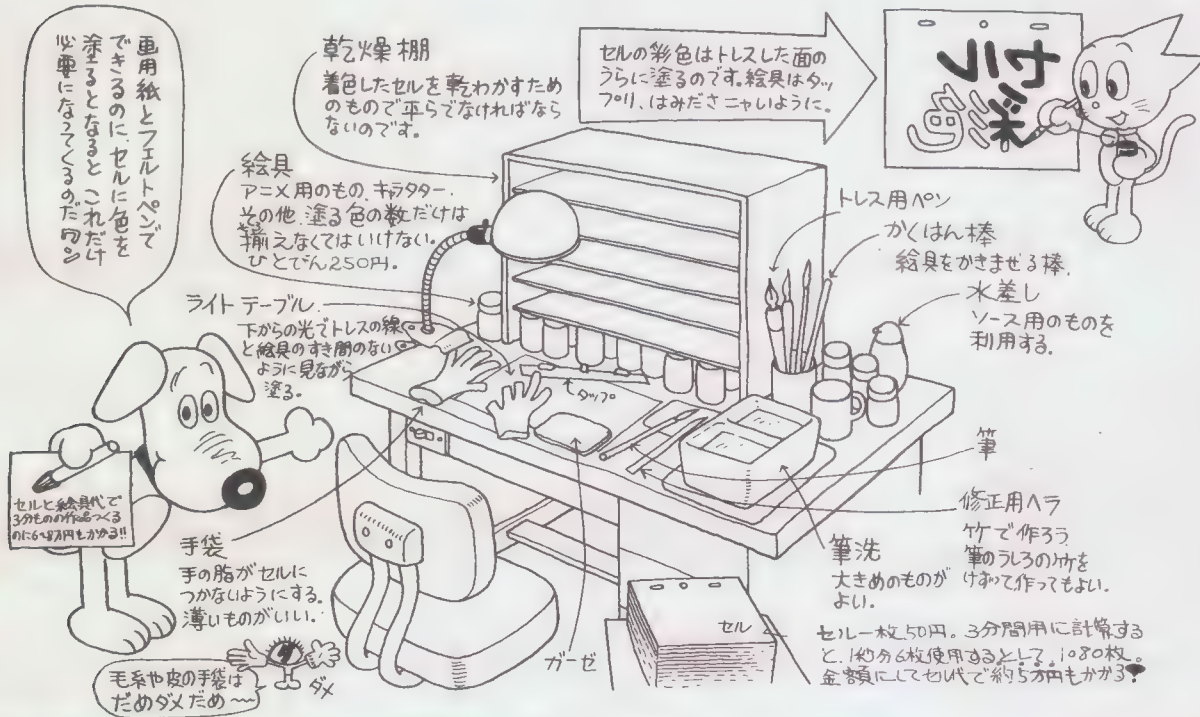 画用紙とフェルトペンで
できるのに、セルに色を
塗るとなると これだけ
必要になってくるのだワン
乾燥棚
着色したセルを乾わかすため
のもので平らでなければなら
ないのです。
セルの彩色はトレスした面の
うらに塗るのです。絵具はタッ
プリ、はみださニャいように。
サンケ
彩色
絵具
アニメ用のもの、キャラクター、
その他、塗る色の数だけは
揃えなくてはいけない。
ひとびん250円。
ライトテーブル
下からの光でトレスの線
と絵具のすき間のない
ように見ながら
塗る。
タップ
トレス用ペン
かくはん棒
絵具をかきまぜる棒。
水差し
ソース用のものを
利用する。
筆
修正用ヘラ
竹で作ろう
筆のうしろの竹を
けずって作ってもよい。
筆洗
大きめのものが
よい。
セルと絵具代で
3分ものの作品つくる
のに6〜8万円もかかる!!
手袋
手の脂がセルに
つかないようにする。
薄いものがいい。
毛糸や皮の手袋は
だめダメだめ〜
ダメ
ガーゼ
セル
セル一枚50円。3分間用に計算する
と、1秒分6枚使用するとして、1080枚。
金額にしてセル代で約5万円もかかる